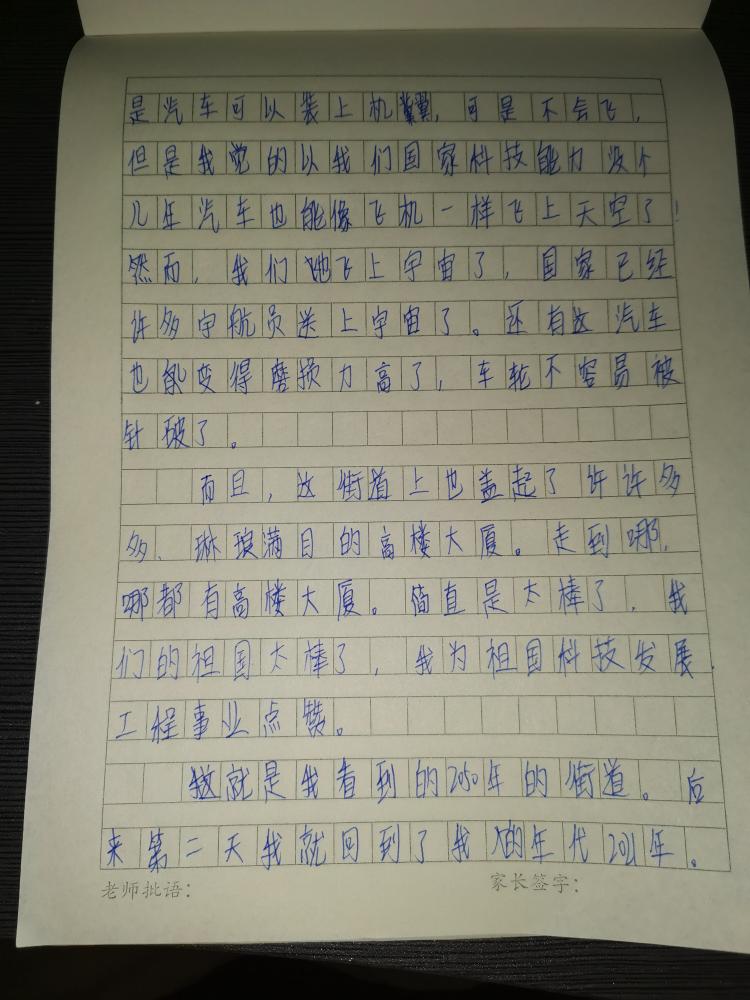 是汽车可以装上机翼，可是不会飞，
但是我觉的以我们国家科技能力没个
儿年汽车也能像飞机一样飞上天空了！
然而，我们她飞上宇宙了，国家已经
许多宇航员送上宇宙了。还有这汽车
也能变得磨损力高了，车轮不容易被
针破了。
而且，这街道上也盖起了许许多
多、琳琅满目的高楼大厦。走到哪，
哪都有高楼大厦。简直是太棒了，我
们的祖国太棒了，我为祖国科技发展、
工程事业点赞。
这就是我看到的2050年的街道。后
来第二天我就回到了我的年代2021年。
老师批语：
家长签字：